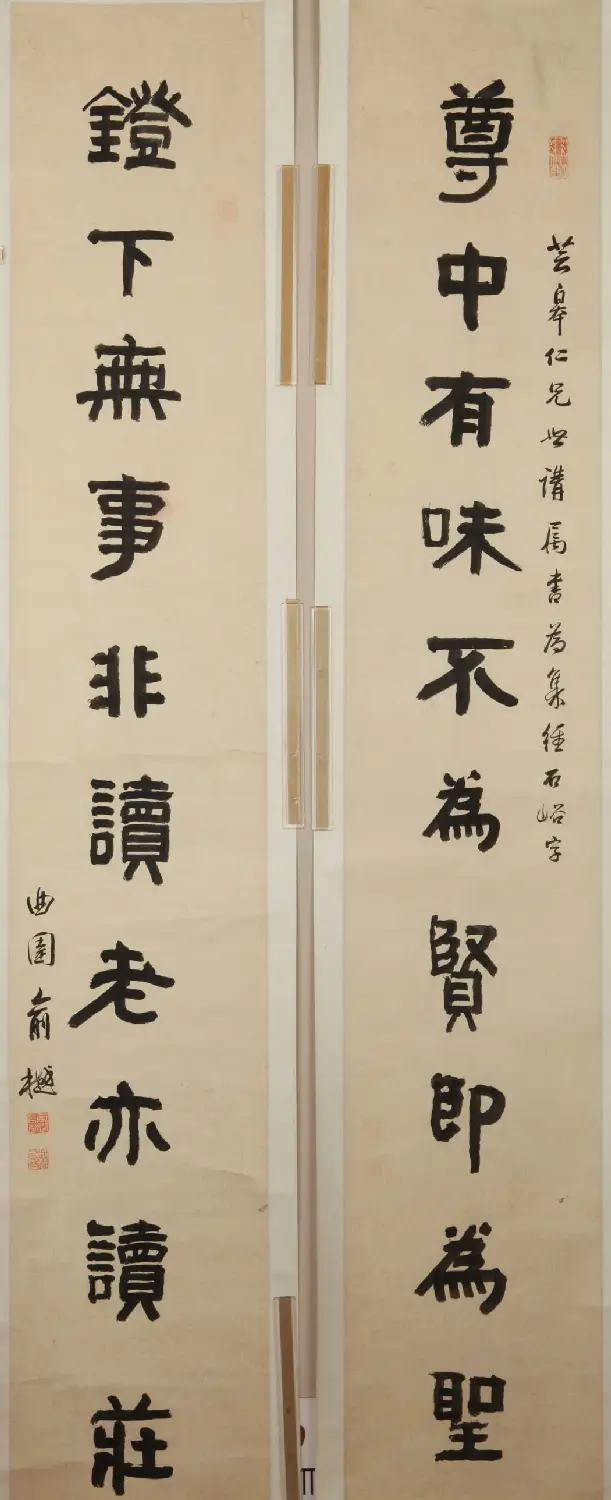 尊中有味不為賢即為聖
芸皋仁兄世講属書為集經石峪字
鐙下無事非讀老亦讀莊
曲園俞樾